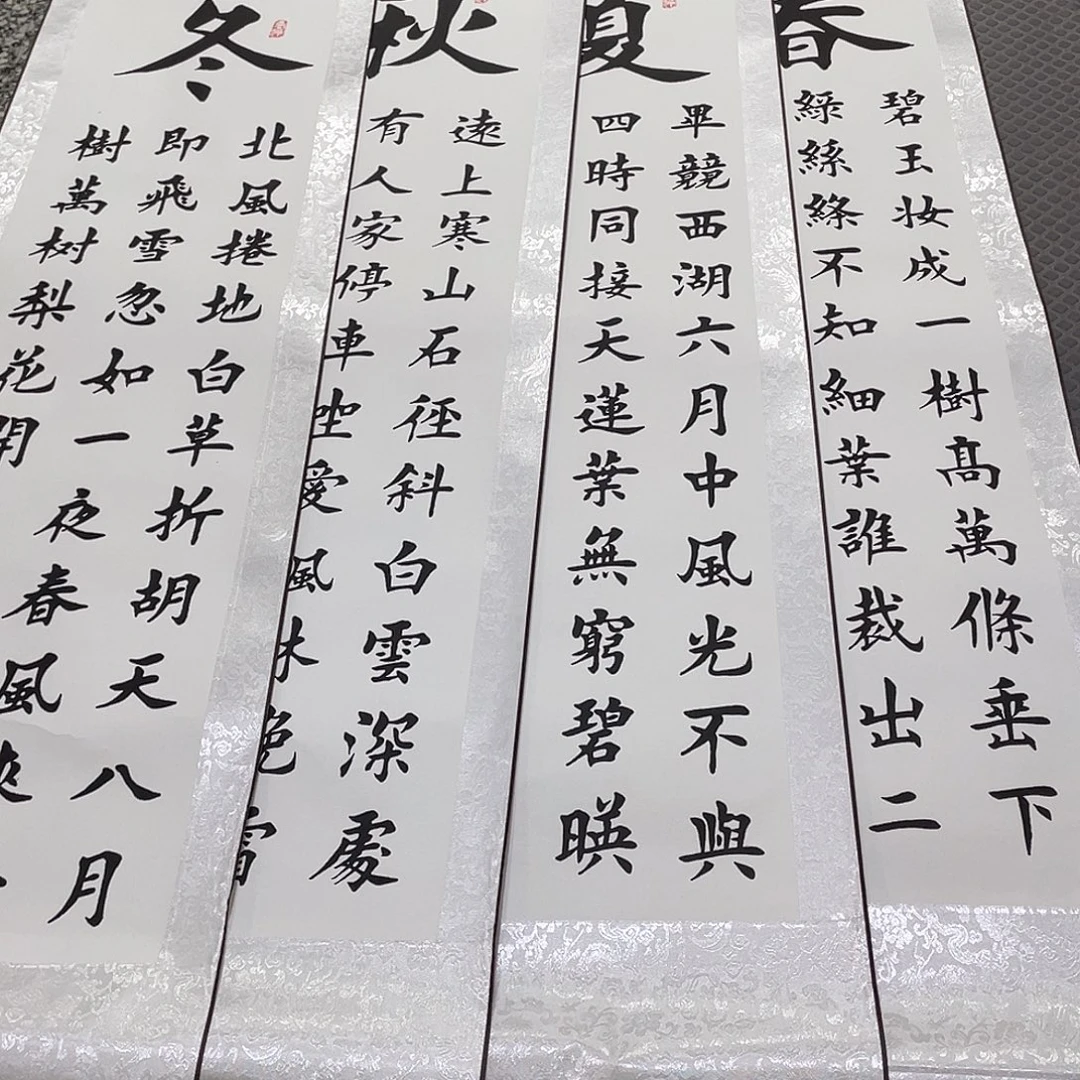 春
碧玉妆成一樹高萬條垂下
綠絲絛不知細葉誰裁出二
夏
畢競西湖六月中風光不與
四時同接天蓮葉無窮碧暎
秋
遠上寒山石徑斜白雲深處
有人家停車坐愛風林晚霜
冬
北風捲地白草折胡天八月
即飛雪忽如一夜春風來
樹萬树梨花開